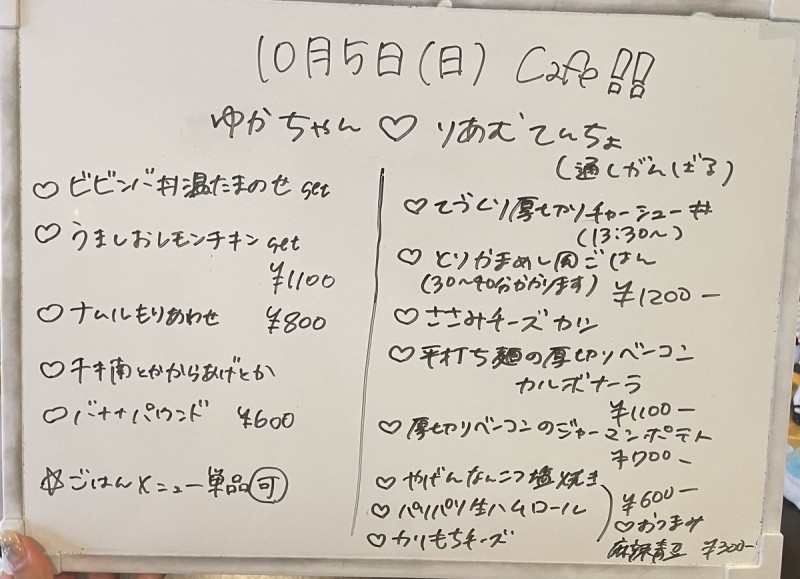 10月5日(日) Cafe!!
ゆかちゃん♡りあむてんちょ
(通しがんばる)
♡ビビンバ丼温たまのせ set
♡うましおレモンチキン set
¥1100
♡ナムルもりあわせ ¥800
♡チキ南とかからあげとか
♡バナナパウンド ¥600
☆ごはんメニュー単品可
♡てづくり厚切りチャーシュー丼
(13:30~)
♡とりかまめし風ごはん
(30~40分かかります) ¥1200-
♡ささみチーズカツ
♡平打ち麺の厚切りベーコン
カルボナーラ
¥1100-
♡厚切りベーコンのジャーマンポテト
¥700-
♡やげんなんこつ塩焼き
♡パリパリ生ハムロール ¥600-
♡カリもちチーズ
♡おつまみ
麻辣青豆 ¥300-